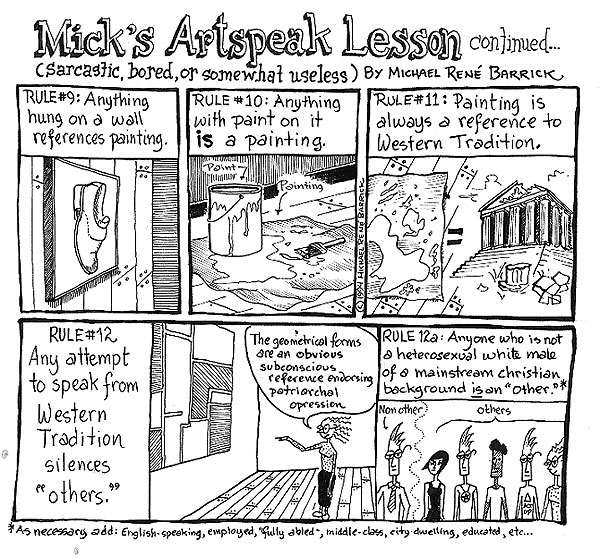 Mick's Artspeak Lesson continued...
(Sarcastic, bored, or somewhat useless) By Michael René Barrick
RULE#9: Anything
hung on a wall
references painting.
RULE #10: Anything
with paint on it
is a painting.
Paint
Painting
(C) 1994 MICHAEL RENÉ BARRICK
RULE#11: Painting is
always a reference to
Western Tradition.
=
RULE#12
Any attempt
to speak from
Western
Tradition
silences
"others."
The geometrical forms
are an obvious
subconscious
reference endorsing
patriarchal
opression
RULE 12a: Anyone who is not
a heterosexual white male
of a mainstream christian
background is an "other."*
Non other
others
ACT
UP
*As necessary add: English-speaking, employed, "fully abled", middle-class, city-dwelling, educated, etc...